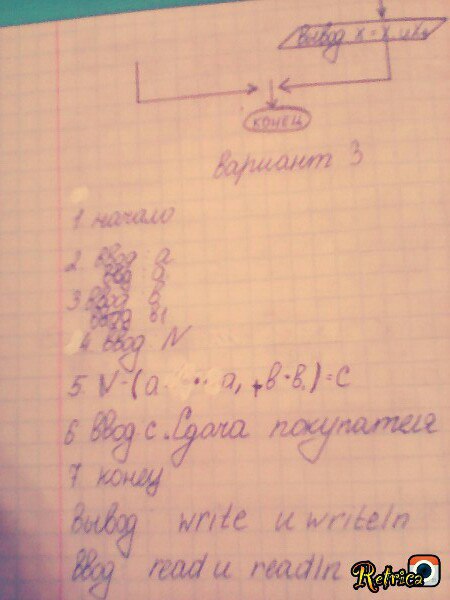 Вывод x = x₁ x₂
конец
вариант 3
1 начало
2. ввод a
ввод a₁
3 ввод в
ввод в1
4 ввод N
5 N-(a · a₁ + в·в₁)=C
6 ввод с. Сдача покупателя
7 конец
Вывод write и writeln
ввод read и readln
Retrica